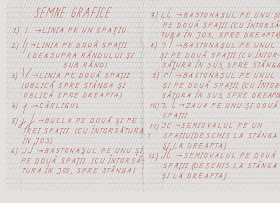 SEMNE GRAFICE
1) | → LINIA PE UN SPAȚIU
2) | → LINIA PE DOUĂ SPAȚII
(DEASUPRA RÂNDULUI ȘI
SUB RÂND)
3) \/ → LINIA PE DOUĂ SPAȚII
(OBLICĂ SPRE STÂNGA ȘI
OBLICĂ SPRE DREAPTA)
4) → CÂRLIGUL
5) → BUCLA PE DOUĂ ȘI PE
TREI SPAȚII (CU ÎNTORSĂTURA
ÎN JOS)
6) → BASTONAȘUL PE UNU ȘI
PE DOUĂ SPAȚII (CU ÎNTORSĂ-
TURA ÎN JOS, SPRE STÂNGA)
7) → BASTONAȘUL PE UNU ȘI
PE DOUĂ SPAȚII (CU ÎNTORSĂ-
TURA ÎN JOS, SPRE DREAPTA)
8) → BASTONAȘUL PE UNUL
ȘI PE DOUĂ SPAȚII (CU ÎNTOR-
SĂTURA ÎN SUS, SPRE STÂNGA)
9) → BASTONAȘUL PE UNUL
ȘI PE DOUĂ SPAȚII (CU ÎNTOR-
SĂTURA ÎN SUS, SPRE DREAPTA)
10) → ZALA PE UNU ȘI DOUĂ
SPAȚII
11) → SEMIOVALUL PE UN
SPAȚIU (DESCHIS LA STÂNGA
ȘI LA DREAPTA)
12) → SEMIOVALUL PE DOUĂ
SPAȚII (DESCHIS LA STÂNGA
ȘI LA DREAPTA)